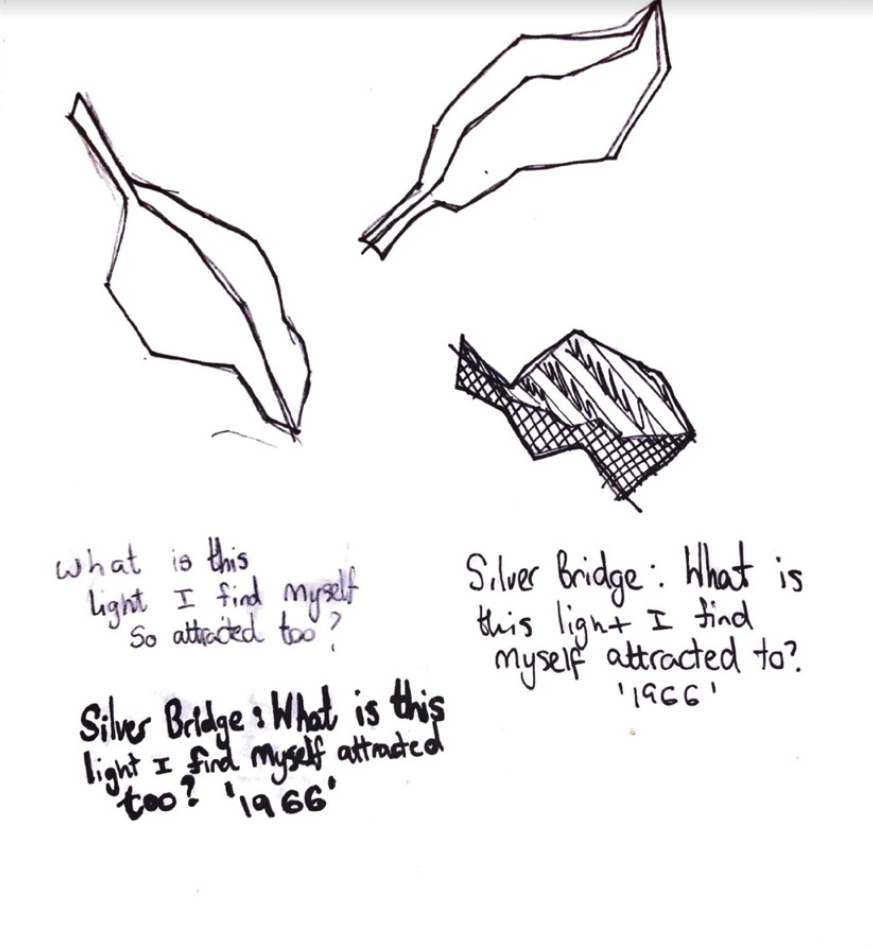 what is this
light I find myself
so attracted too?
Silver Bridge: What is this
light I find myself attracted
too? '1966'
Silver Bridge: What is
this light I find
myself attracted to?
'1966'